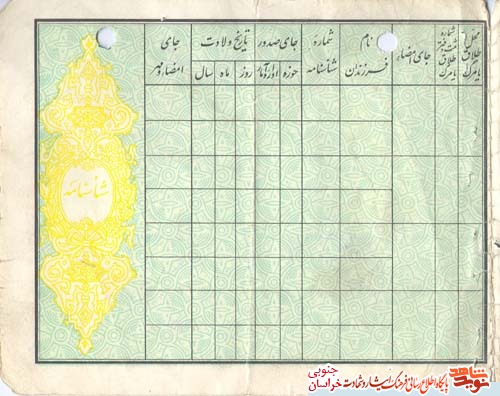 محل
طلاق
یا مرگ
شماره
ثبت دفتر
طلاق
یا مرگ
جای امضاء
نام
فرزندان
شمارهٔ
شناسنامه
جای صدور
حوزه
تاریخ ولادت
روز
ماه
سال
جای
امضاء و مهر
شناسنامه
نوید شاهد
پایگاه اطلاع رسانی فرهنگ ایثار و شهادت خراسان جنوبی